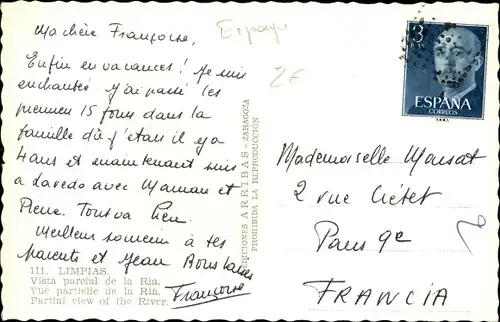 Ma chère Françoise,
Enfin en vacances ! Je suis
enchantée j'ai passé les
premiers 15 jours dans la
famille où j'étais il y a
4 ans et maintenant suis
à Laredo avec Maman et
Pierre. Tout va bien.
Meilleur souvenir à tes
parents et
Françoise
111. LIMPIAS.
Vista parcial de la Ria.
Vue partielle de la Ria.
Partial view of the River.
EDICIONES ARRIBAS - ZARAGOZA
PROHIBIDA LA REPRODUCCIÓN
Espagne
2€
3
PTAS
ESPAÑA
CORREOS
Mademoiselle Monsat
2 rue Crétet
Paris 9e
FRANCIA